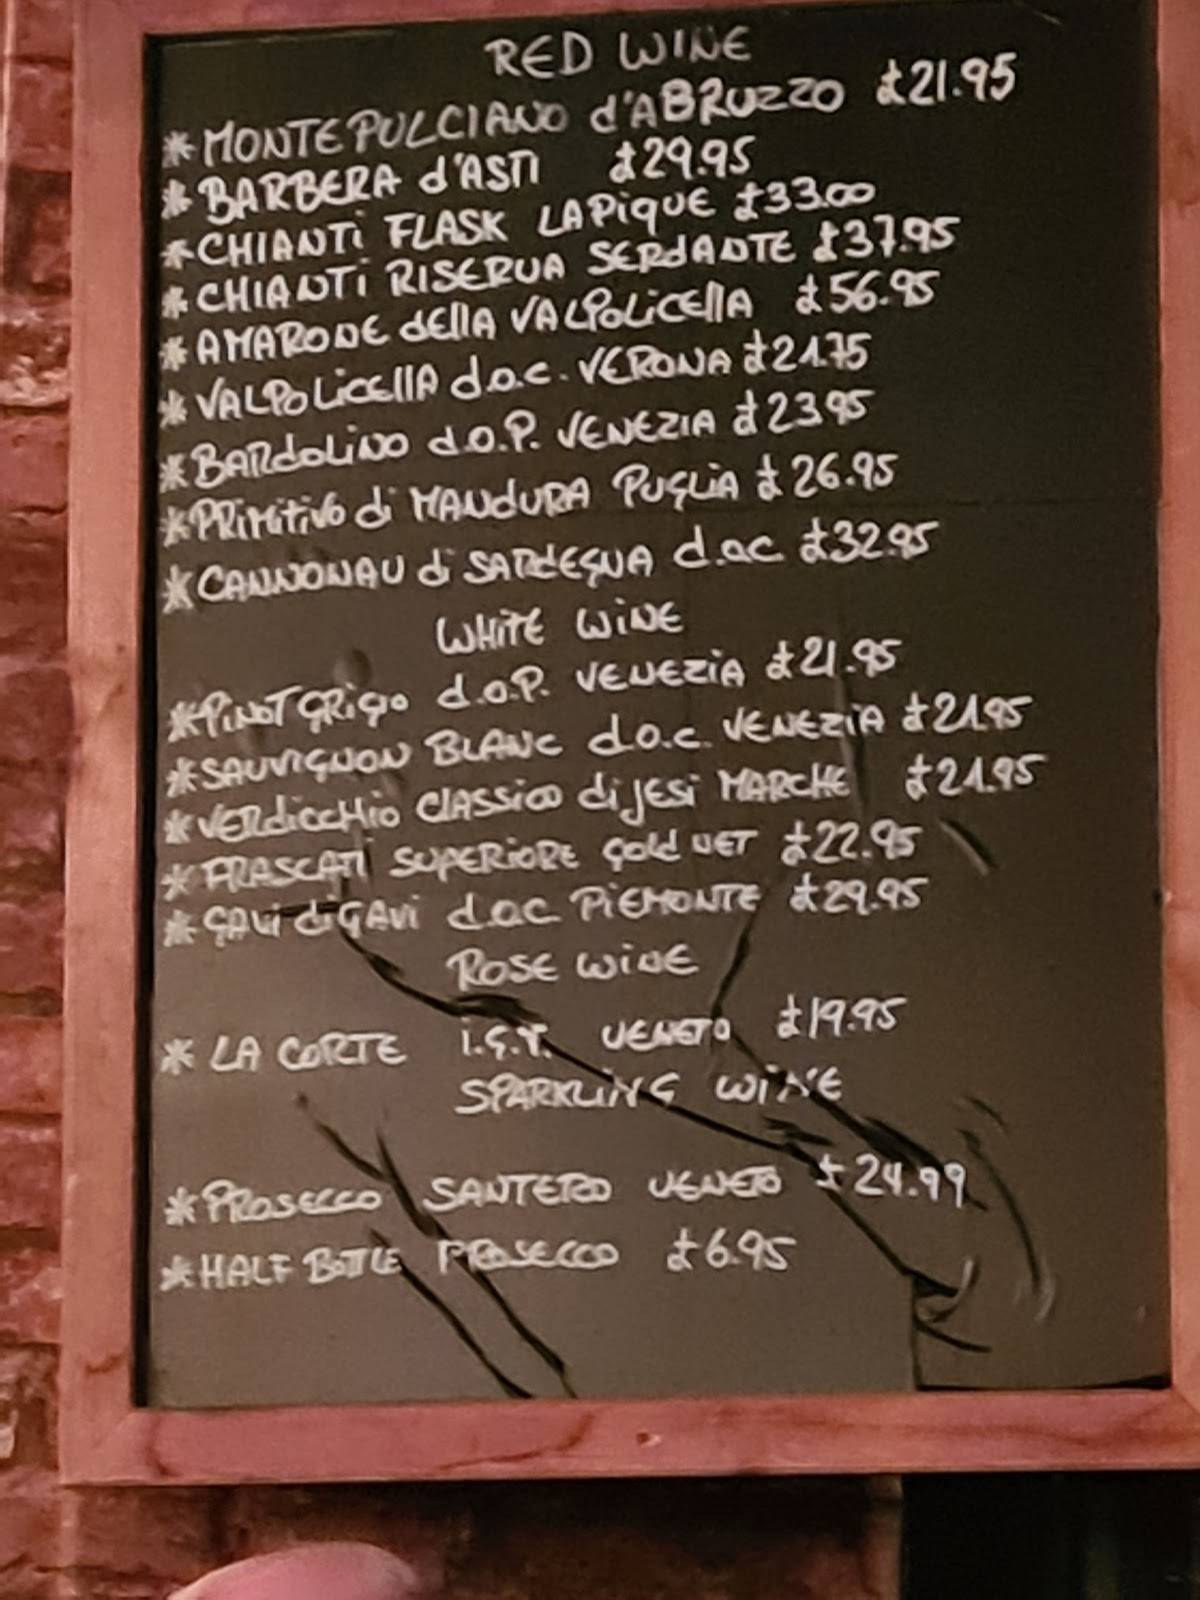 RED WINE
* MONTEPULCIANO d'ABRUZZO £21.95
* BARBERA d'ASTI £29.95
* CHIANTi FLASK LAPiQUE £33.00
* CHIANTi RISERVA SERdANTE £37.95
* AMARONE dEllA VALPOLiCEllA £56.95
* VALPOLiCEllA d.o.c. VERONA £21.75
* BARdOLiNO d.O.P. VENEZIA £23.95
* PRiMitiVo di MANdURA PUGLiA £26.95
* CANNONAU di SARdEGNA d.o.c £32.95
WHiTE WiNE
* PiNOT GRiGio d.o.P. VENEZiA £21.95
* SAUViGNON BLANC d.o.c. VENEZiA £21.95
* VERdiccHio CLASSico di JESi MARCHE £21.95
* FRASCATi SUPERiORE GOld NET £22.95
* GAVi di GAVi d.o.c PiEMONTE £29.95
ROSE WiNE
* LA CORTE i.G.T. VENETO £19.95
SPARKLiNG WiNE
* PROSECCO SANTERO VENETO £24.99
* HALF BOTTLE PROSECCO £6.95